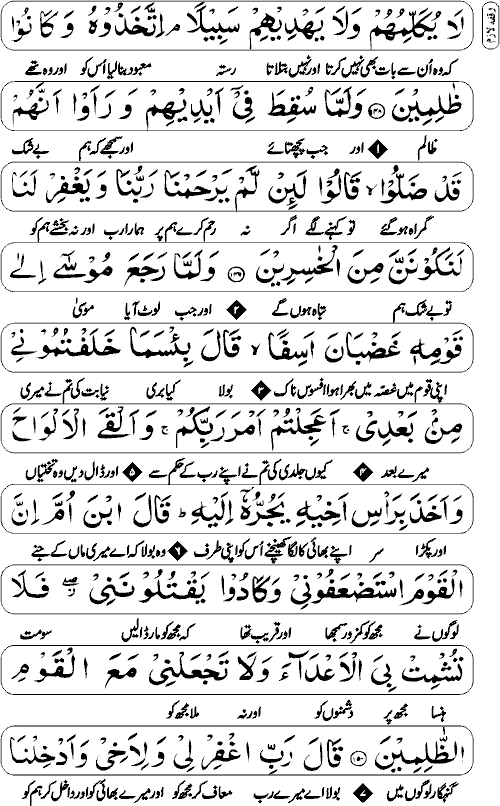 وقف لازم
لَا يُكَلِّمُهُمْ وَلَا يَهْدِيْهِمْ سَبِيْلًا ۘ اِتَّخَذُوْهُ وَكَانُوْا
کہ وہ اُن سے بات بھی نہیں کرتا اور نہیں بتلاتا رستہ معبود بنا لیا اُس کو اور وہ تھے
ظٰلِمِيْنَ ﴿۱۴۸﴾ وَلَمَّا سُقِطَ فِيْٓ اَيْدِيْهِمْ وَرَاَوْا اَنَّهُمْ
ظالم ۱ اور جب پچھتائے اور سمجھے کہ ہم بے شک
قَدْ ضَلُّوْا ۙ قَالُوْا لَىِٕنْ لَّمْ يَرْحَمْنَا رَبُّنَا وَيَغْفِرْ لَنَا
گمراہ ہو گئے تو کہنے لگے اگر نہ رحم کرے ہم پر ہمارا رب اور نہ بخشے ہم کو
لَنَكُوْنَنَّ مِنَ الْخٰسِرِيْنَ ﴿۱۴۹﴾ وَلَمَّا رَجَعَ مُوْسٰٓى اِلٰى
تو بے شک ہم تباہ ہوں گے ۲ اور جب لوٹ آیا موسیٰ
قَوْمِهٖ غَضْبَانَ اَسِفًا ۙ قَالَ بِئْسَمَا خَلَفْتُمُوْنِيْ
اپنی قوم میں غصہ میں بھرا ہوا افسوس ناک ۳ بولا کیا بری نیابت کی تم نے میری
مِنْۢ بَعْدِيْ ۚ اَعَجِلْتُمْ اَمْرَ رَبِّكُمْ ۚ وَاَلْقَى الْاَلْوَاحَ
میرے بعد ۴ کیوں جلدی کی تم نے اپنے رب کے حکم سے ۵ اور ڈال دیں وہ تختیاں
وَاَخَذَ بِرَاْسِ اَخِيْهِ يَجُرُّهٗٓ اِلَيْهِ ؕ قَالَ ابْنَ اُمَّ اِنَّ
اور پکڑا سر اپنے بھائی کا لگا کھینچنے اُس کو اپنی طرف ۶ وہ بولا کہ اے میری ماں کے جنے
الْقَوْمَ اسْتَضْعَفُوْنِيْ وَكَادُوْا يَقْتُلُوْنَنِيْ ۖ فَلَا
لوگوں نے مجھ کو کمزور سمجھا اور قریب تھا کہ مجھ کو مار ڈالیں سو مت
تُشْمِتْ بِيَ الْاَعْدَآءَ وَلَا تَجْعَلْنِيْ مَعَ الْقَوْمِ
ہنسا مجھ پر دشمنوں کو اور نہ ملا مجھ کو
الظّٰلِمِيْنَ ﴿۱۵۰﴾ قَالَ رَبِّ اغْفِرْ لِيْ وَلِاَخِيْ وَاَدْخِلْنَا
گنہگار لوگوں میں ۷ بولا اے میرے رب معاف کر مجھ کو اور میرے بھائی کو اور داخل کر ہم کو